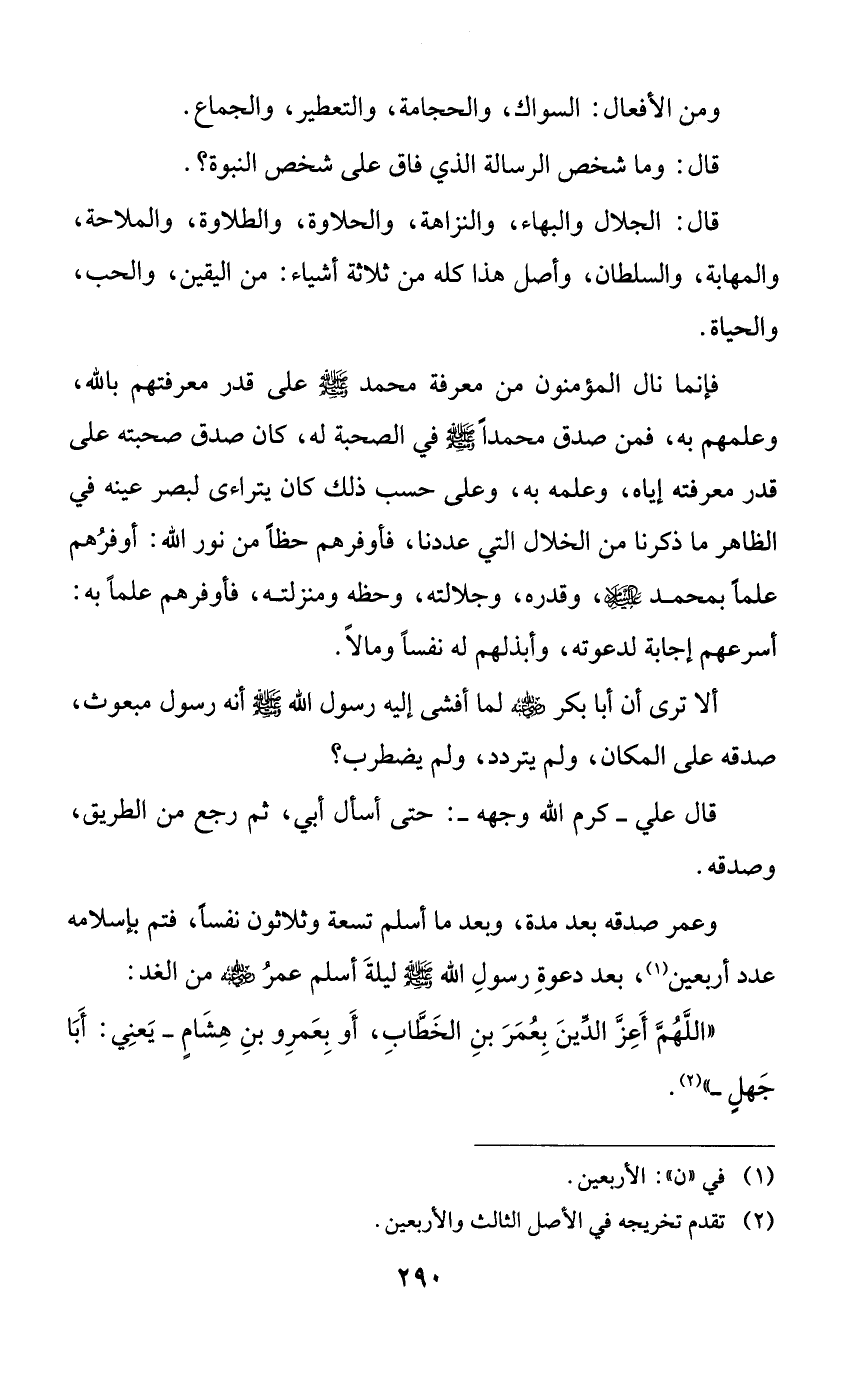 ومن الأفعال: السواك، والحجامة، والتعطير، والجماع.
قال: وما شخص الرسالة الذي فاق على شخص النبوة؟.
قال: الجلال والبهاء، والنزاهة، والحلاوة، والطلاوة، والملاحة،
والمهابة، والسلطان، وأصل هذا كله من ثلاثة أشياء: من اليقين، والحب،
والحياة.
فإنما نال المؤمنون من معرفة محمد ﷺ على قدر معرفتهم بالله،
وعلمهم به، فمن صدق محمداً ﷺ في الصحبة له، كان صدق صحبته على
قدر معرفته إياه، وعلمه به، وعلى حسب ذلك كان يتراءى لبصر عينه في
الظاهر ما ذكرنا من الخلال التي عددنا، فأوفرهم حظاً من نور الله: أوفرُهم
علماً بمحمـد عليه السلام، وقدره، وجلالته، وحظه ومنزلتـه، فأوفرهم علماً به:
أسرعهم إجابة لدعوته، وأبذلهم له نفساً ومالاً.
ألا ترى أن أبا بكر رضي الله عنه لما أفشى إليه رسول الله ﷺ أنه رسول مبعوث،
صدقه على المكان، ولم يتردد، ولم يضطرب؟
قال علي ـ كرم الله وجهه ـ: حتى أسأل أبي، ثم رجع من الطريق،
وصدقه.
وعمر صدقه بعد مدة، وبعد ما أسلم تسعة وثلاثون نفساً، فتم بإسلامه
عدد أربعين(١)، بعد دعوةِ رسولِ الله ﷺ ليلةَ أسلم عمرُ رضي الله عنه من الغد:
«اللَّهُمَّ أَعِزَّ الدِّينَ بِعُمَرَ بنِ الخَطَّابِ، أَو بِعَمرِو بنِ هِشَامٍ ـ يَعنِي: أَبَا
جَهلٍ ـ»(٢).
(١) في «ن»: الأربعين.
(٢) تقدم تخريجه في الأصل الثالث والأربعين.
٢٩٠